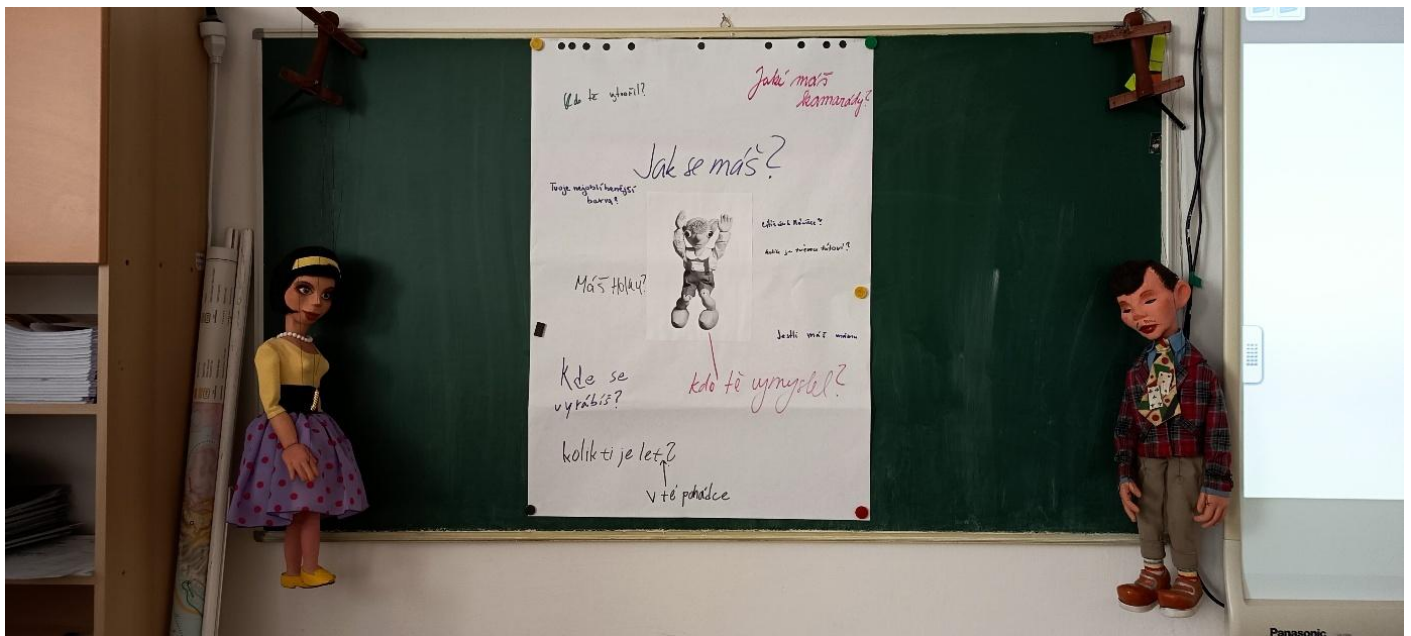 Kdo tě vytvořil?
Jaké máš
kamarády?
Jak se máš?
Tvoje nejoblíbenější
barva?
Máš Holky?
Jestli máš
Kde se
vyrábíš?
kdo tě vymyslel?
kolik ti je let?
v té pohádce
Panasonic